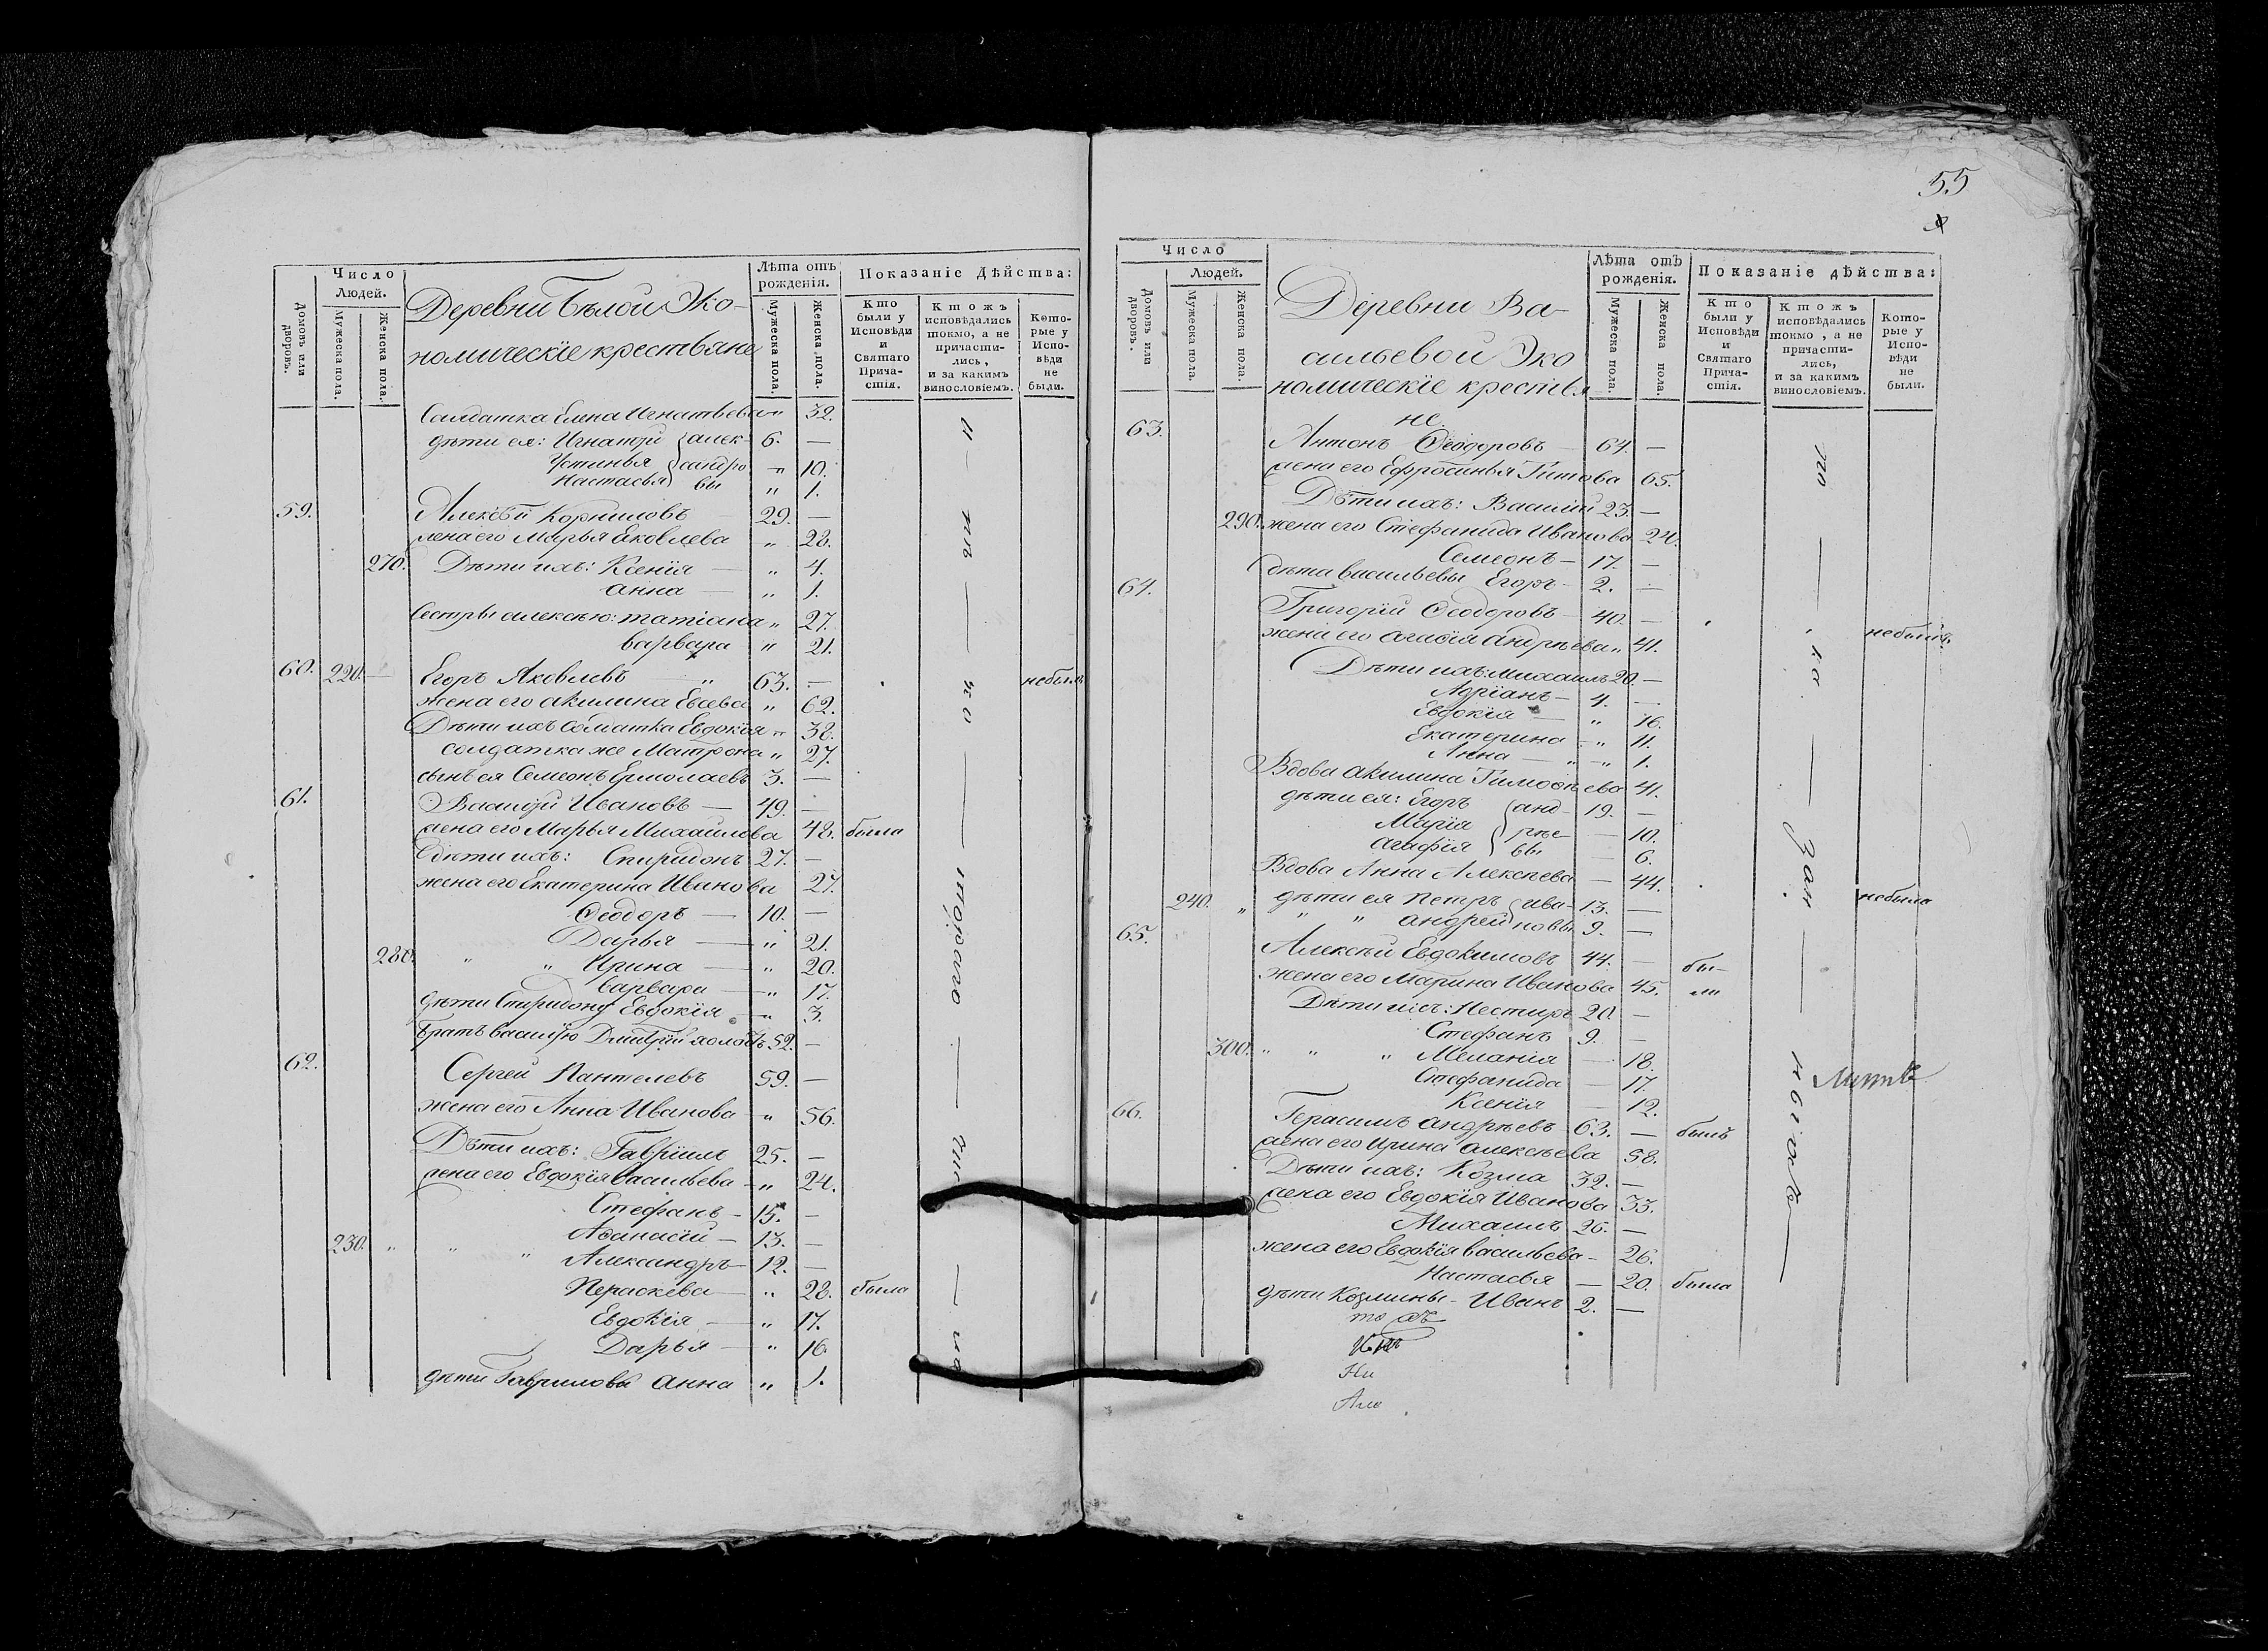 55
Число
Людей.
Домовъ или дворовъ.
Мужеска пола.
Женска пола.
Деревни Бѣлой Эко-
номическіе крестьяне
Лѣта отъ рожденія.
Мужеска пола.
Женска пола.
Показаніе Дѣйства:
Кто были у Исповѣди и Святаго Прича- стія.
Ктожъ исповѣдались токмо, а не причасти- лись, и за какимъ винословіемъ.
Кото- рые у Испо- вѣди не были.
Салдатка Елена Игнатьева „ 32.
дѣти ея: Игнатій алек- 6. —
Устинья сандро „ 10.
Настасья вы „ 1.
59. Алексѣй Корниловъ 29. —
жена его Марья Яковлева „ 28.
270. Дѣти ихъ: Ксенія — „ 4.
Анна — „ 1.
Сестры алексѣю: татіана „ 27.
варвара „ 21.
60. 220. — Егоръ Яковлевъ „ 63. — небылъ
жена его Акилина Евсева „ 62.
Дѣти ихъ Солдатка Евдокія „ 38.
солдатка же Матрона „ 27.
сынъ ея Семеонъ Ермолаевъ 3. —
61. Василій Ивановъ — 49. —
жена его Марья Михайлова 48. была
дѣти ихъ: Спиридонъ 27. —
жена его Екатерина Иванова 27.
Ѳеодоръ — 10. —
Дарья — „ 21.
280. „ „ Ирина — „ 20.
варвара — „ 17.
дѣти Спиридону Евдокія „ 3.
братъ василію Дмитрій холостъ 52. —
62. Сергей Пантелевъ 59. —
жена его Анна Иванова „ 56.
Дѣти ихъ: Гавріилъ 25. —
жена его Евдокія Васильева „ 24.
Стефанъ — 15. —
Аѳанасій — 13. —
230. „ „ „ Александръ 12. —
Пераскева „ 28. была
Евдокія — „ 17.
Дарья — „ 16
дѣти Гавриловы Анна „ 1.
Число
Людей.
Домовъ или дворовъ.
Мужеска пола.
Женска пола.
Деревни Ва-
сильевой Эко
номическіе крестья
не
Лѣта отъ рожденія.
Мужеска пола.
Женска пола.
Показаніе дѣйства:
Кто были у Исповѣди и Святаго Прича- стія.
Ктожъ исповѣдались токмо, а не причасти- лись, и за какимъ винословіемъ.
Кото- рые у Испо- вѣди не были.
63. Антонъ Ѳеодоровъ — 64. —
жена его Ефросинья Титова 65.
Дѣти ихъ: Василій 23. —
290. жена его Стефанида Иванова 24.
Семеонъ — 17. —
дѣти васильевы Егоръ — 2. —
64. Григорій Ѳеодоровъ — 40. —
жена его агафія андрѣева „ 41.
Дѣти ихъ: михаилъ 20. —
Адріанъ — 4. —
Евдокія — „ 16.
Екатерина „ 11.
Анна — „ 1.
Вдова Акилина Тимоѳѣева 41.
дѣти ея: Егоръ анд 19. —
Марія рѣе — 10.
агафія вы — 6.
Вдова Анна Алексѣева — 44. небыла
240. „ дѣти ея петръ ива- 13. —
„ „ андрей новы 9. —
65. Алексѣй Евдокимовъ 44. — бы-
жена его Марина Иванова 45. ли
Дѣти ихъ: Нестиръ 20. —
Стефанъ 9. —
300. „ „ „ Меланія — 18.
Стефанида — 17.
Ксенія — 12.
66. Герасимъ Андрѣевъ 63. — былъ
жена его Ирина Алексѣева 58.
Дѣти ихъ: Козма 32. —
жена его Евдокія Иванова 33.
Михаилъ 26. —
жена его Евдокія васильева — 26.
Настасья — 20. была
дѣти Козмины — Иванъ 2. —
Ни